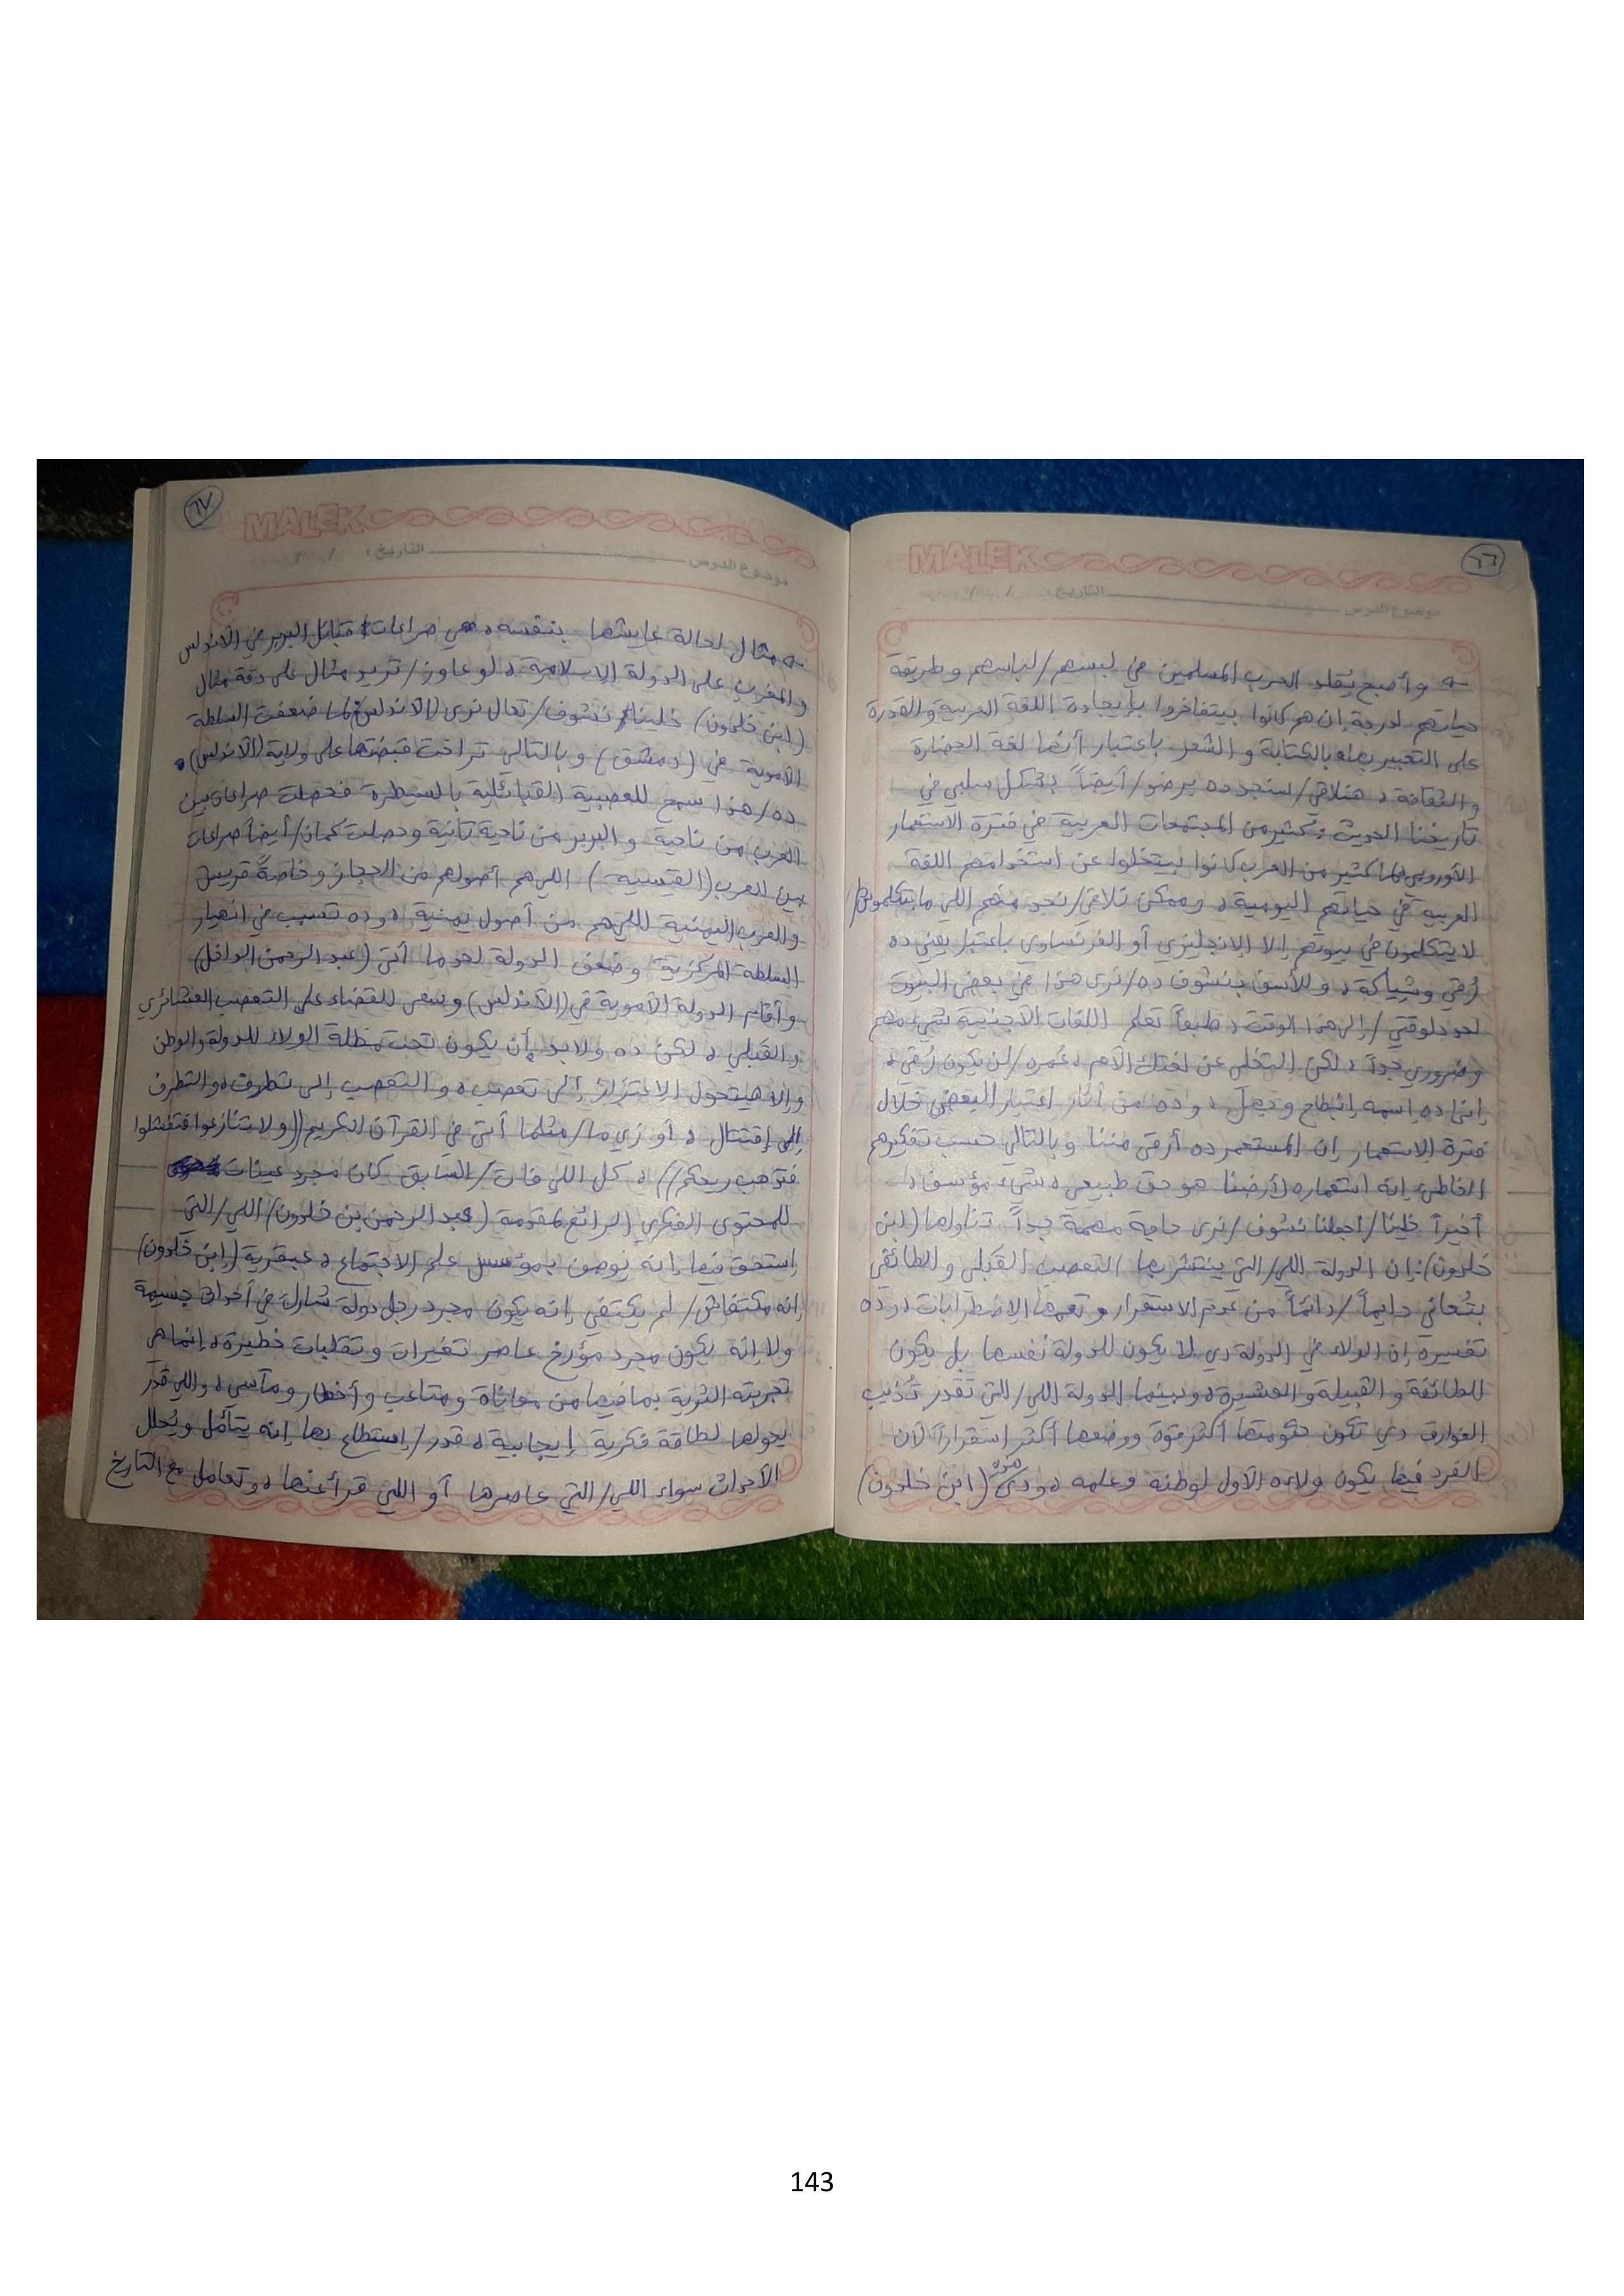 ٦٦
MALEK
موضوع الدرس التاريخ: / /
وأصبح يُقلد العرب المسلمين في لبسهم/لباسهم وطريقة
حياتهم لدرجة إن هم كانوا بيتفاخروا بإيجادة اللغة العربية والقدرة
على التعبير بها، بالكتابة والشعر باعتبار أنها لغة الحضارة
والثقافة، هنلاقي/سنجد ده برضو/أيضاً بشكل سلبي في
تاريخنا الحديث، كثير من المجتمعات العربية في فترة الاستعمار
الأوروبي لها كثير من العرب كانوا بيتخلوا عن استخدامهم اللغة
العربية في حياتهم اليومية، وممكن نلاقي/نجد منهم اللي ما بيتكلموش/
لا يتكلمون في بيوتهم إلا الإنجليزي أو الفرنساوي باعتبار يعني ده
رُقي وشياكة، وللأسف بنشوف ده/نرى هذا في بعض البيوت
لحد دلوقتي/إلى هذا الوقت، طبعاً تعلم اللغات الأجنبية شيء مهم
وضروري جداً، لكن التخلي عن لغتك الأم، عُمره/لن يكون رُقي،
إنما ده إسمه إنبطاح وجهل، وده من آثار اعتبار البعض خلال
فترة الاستعمار إن المستعمر ده أرقى مننا وبالتالي حسب تفكيرهم
الخاطئ إنه استعماره لأرضنا هو حق طبيعي، شيء مؤسف،
أخيراً خلينا/اجعلنا نشوف/نرى حاجة مهمة جداً تناولها (ابن
خلدون): إن الدولة اللي/التي ينتشر بها التعصب القبلي والطائفي
بتُعاني دايماً/دائماً من عدم الاستقرار وتعمها الاضطرابات، وده
تفسيره إن الولاء في الدولة دي لا يكون للدولة نفسها بل يكون
للطائفة والقبيلة والعشيرة، وبينما الدولة اللي/التي تقدر تُذيب
الفوارق دي تكون حكومتها أكثر قوة ووضعها أكثر إستقراراً لأن
الفرد فيها يكون ولاءه الأول لوطنه وعلمه، ودي (ابن خلدون)
٦٧
MALEK
موضوع الدرس التاريخ: / /
مثال لحالة عايشها بنفسه، هي صراعات قبائل البربر في الأندلس
والمغرب على الدولة الإسلامية، لو عاوز/تريد مثال على دقة مثال
(ابن خلدون) خلينا نشوف/تعال نرى (الأندلس) لما ضعفت السلطة
الأموية في (دمشق) وبالتالي تراخت قبضتها على ولاية (الأندلس)،
ده/هذا سمح للعصبية القبائلية بالسيطرة فحصلت صراعات بين
العرب من ناحية والبربر من ناحية تانية وحصلت كمان/أيضاً صراعات
بين العرب (القيسية) اللي هم أصولهم من الحجاز وخاصةً قريش
والعرب اليمنية اللي هم من أصول يمنية، وده تسبب في انهيار
السلطة المركزية وضعف الدولة لحد ما أتى (عبد الرحمن الداخل)
وأقام الدولة الأموية في (الأندلس) وسعى للقضاء على التعصب العشائري
والقبلي، لكن ده ولابد إن يكون تحت مظلة الولاء للدولة والوطن
وإلا هيتحول الإعتزاز إلى تعصب، والتعصب إلى تطرف، والتطرف
إلى إقتتال، أو زي ما/مثلما أتى في القرآن الكريم ((ولا تنازعوا فتفشلوا
فتذهب ريحكم))، كل اللي فات/السابق كان مجرد عينات
للمحتوى الفكري الرائع لمقدمة (عبد الرحمن بن خلدون) اللي/التي
إستحق فيها إنه يُوصف بمؤسس علم الإجتماع، عبقرية (إبن خلدون)
إنه مكتفاش/لم يكتفي إنه يكون مجرد رجل دولة شارك في أحداث جسيمة
ولا إنه يكون مجرد مؤرخ عاصر تغيرات وتقلبات خطيرة، إنما هي
تجربته الثرية بما فيها من معاناة ومتاعب وأخطار ومآسي، واللي قدر
يحولها لطاقة فكرية إيجابية، قدر/إستطاع بها إنه يتأمل ويُحلل
الأحداث سواء اللي/التي عاصرها أو اللي قرأ عنها، وتعامل مع التاريخ
143